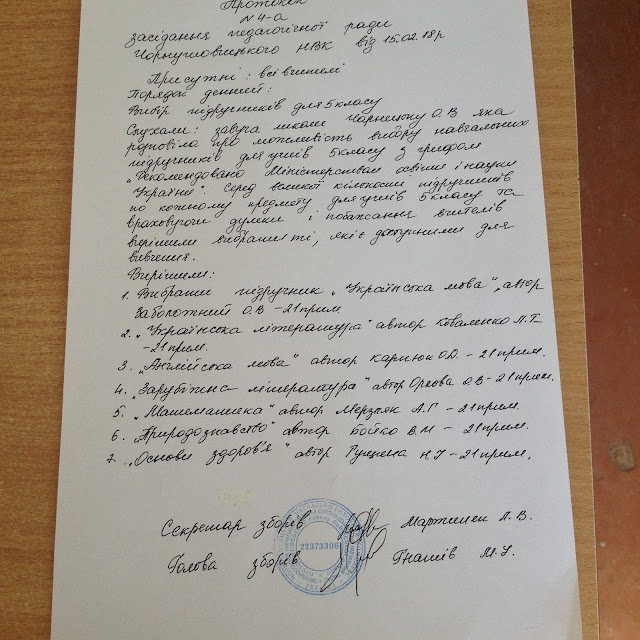 Протокол
N 4-а
засідання педагогічної ради
Чорнушовицького НВК від 15.02.18р
Присутні: всі вчителі
Порядок денний:
Вибір підручників для 5 класу
Слухали: завуча школи Чорнецьку О.В яка
розповіла про можливість вибору навчальних
підручників для учнів 5 класу з грифом
„Рекомендовано Міністерством освіти і науки
України". Серед великої кількости підручників
по кожному предмету для учнів 5 класу та
враховуючи думки і побажання вчителів
вирішили вибрати ті, які є доступними для
вивчення.
Вирішили:
1. Вибрати підручник „Українська мова", автор
Заболотний О.В -21 прим
2. „Українська література" автор Коваленко Л.Т.
-21 прим.
3. „Англійська мова" автор Карпюк О.Д. - 21 прим.
4. „Зарубіжна література" автор О.В - 21 прим.
5. „Математика" автор Мерзляк А.Г - 21 прим.
6. „Природознавство" автор Бойко В.М - 21 прим.
7. „Основи здоров'я" автор Н.У - 21 прим.
Секретар зборів Мартинец Л.В.
Голова зборів Гнатів М.У.
22373306